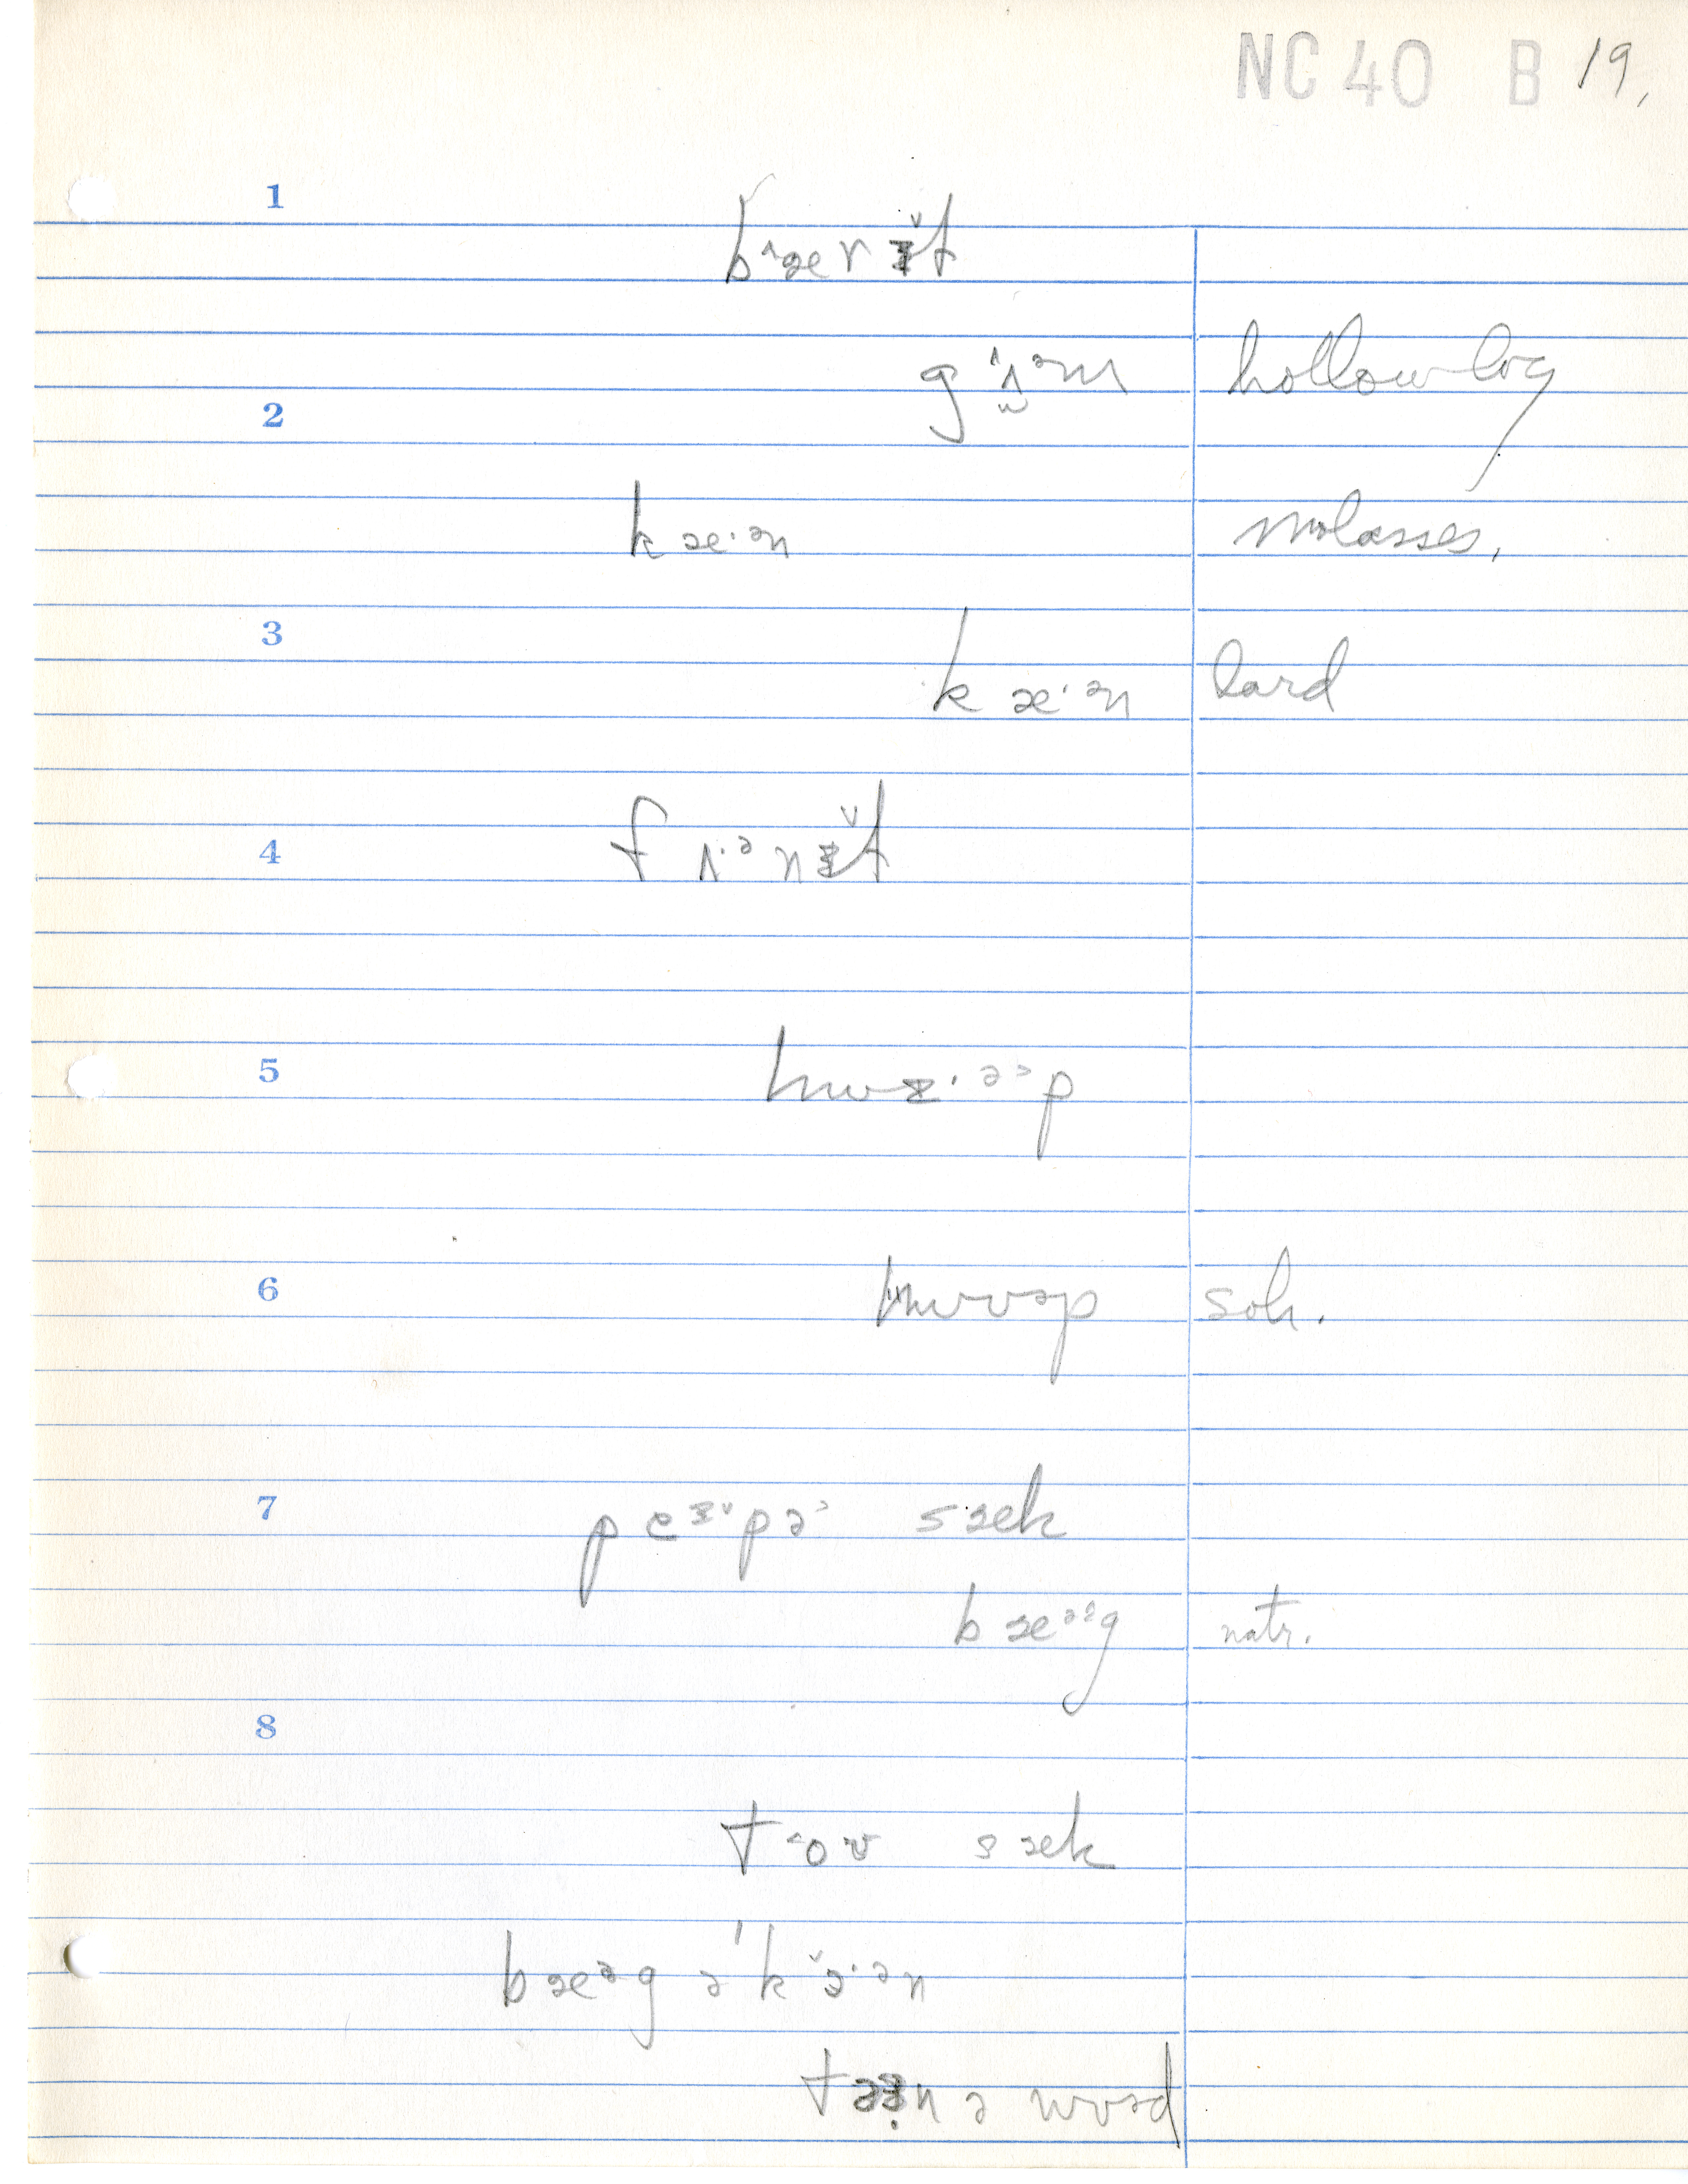 NC 40 B 19,
1
b^ær ɪ̆t
gʌ̭̂ᵊm hollow log
2
k æ·ᵊn molasses,
3
k æ·ᵊn lard
4
f ʌ·ᵊ nɪ̆t
5
hwɪ·ᵊ˃p
6
hwʊəp soh.
7
p eɪ̌pə˃ sæk
b æᵊ˄g natr.
8
t ˂oʊ sæk
bæᵊg ə ˈk ɔ̌·ən
n ə wʊəd